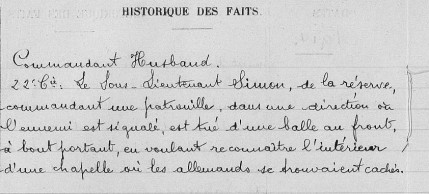 HISTORIQUE DES FAITS.
Commandant Husband.
22e Cie: Le Sous-Lieutenant Simon, de la réserve,
commandant une patrouille, dans une direction où
l'ennemi est signalé, est tué d'une balle au front,
à bout portant, en voulant reconnaître l'intérieur
d'une chapelle où les allemands se trouvaient cachés.